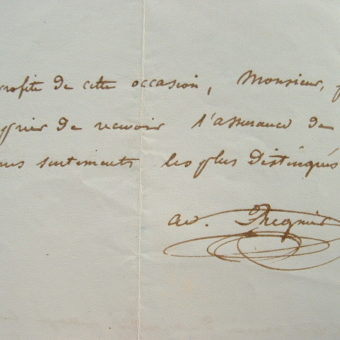 rofite de cette occasion, Monsieur, p
prier de recevoir l'assurance de
mes sentiments les plus distingués
ad. Regnier